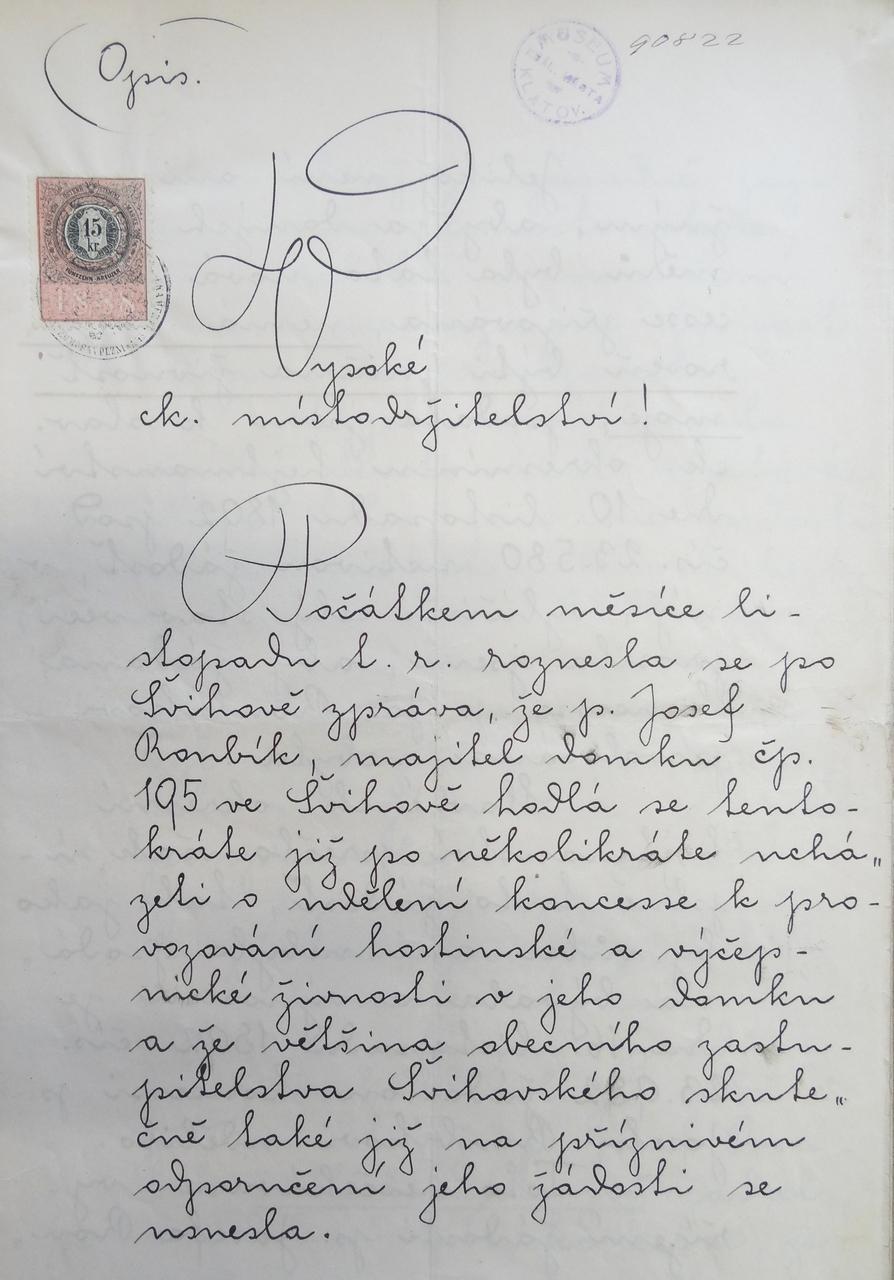 Opis.
MUSEUM
KLATOV.
90822
15
kr.
1888
Vysoké
ck. místodržitelství!
Počátkem měsíce li-
stopadu t. r. roznesla se po
Švihově zpráva, že p. Josef
Roubík, majitel domku čp.
195 ve Švihově hodlá se tento-
kráte již po několikráte uchá„
zeti o udělení koncesse k pro-
vozování hostinské a výčep-
nické živnosti v jeho domku
a že většina obecního zastu-
pitelstva Švihovského skute„
čně také již na příznivém
odporučení jeho žádosti se
usnesla.